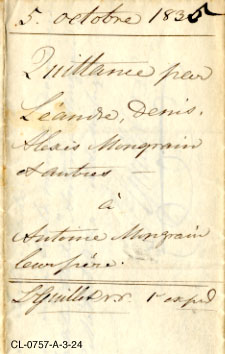 5. octobre 1835
Quittance par
Léandre, Denis,
Alexis Mongrain
& autres —
à
Antoine Mongrain
leur père.
L. Guillet N.P. 1re expd
CL-0757-A-3-24